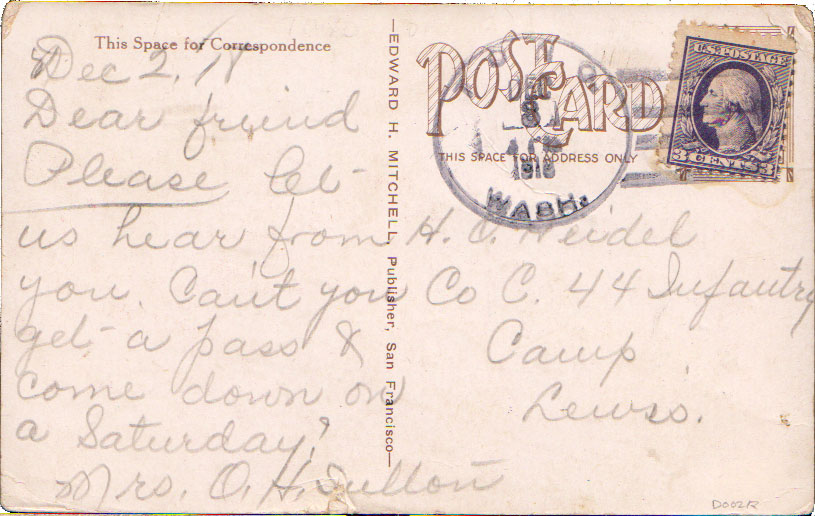 This Space for Correspondence
Dec 2, 18
Dear friend
Please let
us hear from
you. Can't you
get a pass &
come down on
a Saturday?
Mrs. O. H. Sutton
—EDWARD H. MITCHELL, Publisher, San Francisco—
POST CARD
THIS SPACE FOR ADDRESS ONLY
DEC
3
1918
WASH.
U.S. POSTAGE
3 CENTS 3
H. C. Weidel
Co C. 44 Infantry
Camp
Lewis.
D002R